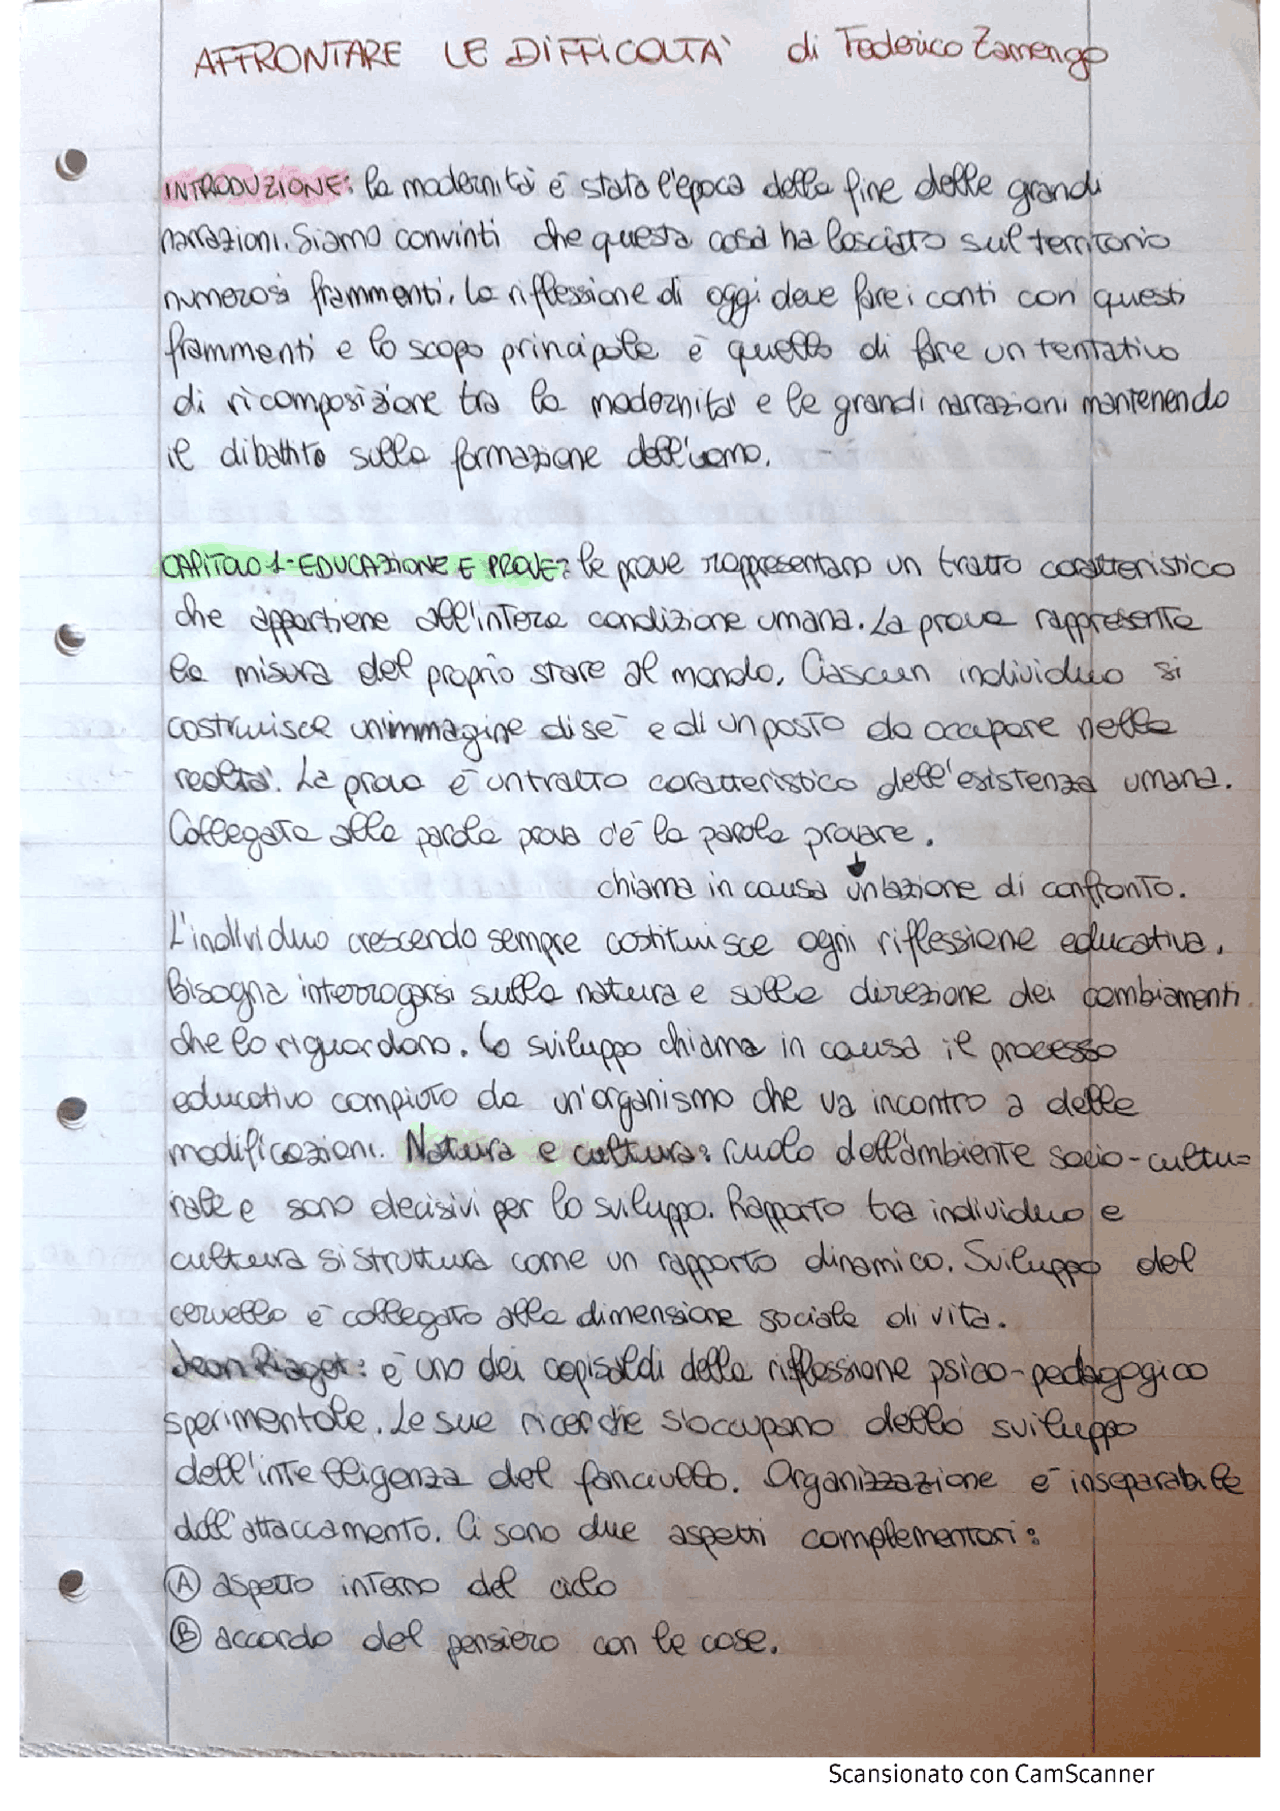 AFFRONTARE LE DIFFICOLTA' di Federico Zamengo
INTRODUZIONE: la modernità è stata l'epoca della fine delle grandi
narrazioni. Siamo convinti che questa cosa ha lasciato sul territorio
numerosi frammenti. La riflessione di oggi deve fare i conti con questi
frammenti e lo scopo principale è quello di fare un tentativo
di ricomposizione tra la modernità e le grandi narrazioni mantenendo
il dibattito sulla formazione dell'uomo.
CAPITOLO 1-EDUCAZIONE E PROVE: le prove rappresentano un tratto caratteristico
che appartiene all'intera condizione umana. La prova rappresenta
la misura del proprio stare al mondo. Ciascun individuo si
costruisce un'immagine di sé e di un posto da occupare nella
realtà. La prova è un tratto caratteristico dell'esistenza umana.
Collegata alla parola prova c'è la parola provare.
chiama in causa un'azione di confronto.
L'individuo crescendo sempre costituisce ogni riflessione educativa.
Bisogna interrogarsi sulla natura e sulla direzione dei cambiamenti
che lo riguardano. Lo sviluppo chiama in causa il processo
educativo compiuto da un'organismo che va incontro a delle
modificazioni. Natura e cultura: ruolo dell'ambiente socio-cultu=
rale e sono decisivi per lo sviluppo. Rapporto tra individuo e
cultura si struttura come un rapporto dinamico. Sviluppo del
cervello è collegato alla dimensione sociale di vita.
Jean Piaget: è uno dei capisaldi della riflessione psico-pedagogico
sperimentale. Le sue ricerche s'occupano dello sviluppo
dell'intelligenza del fanciullo. Organizzazione è inseparabile
dall'attaccamento. Ci sono due aspetti complementari:
A aspetto interno del ciclo
B accordo del pensiero con le cose.
Scansionato con CamScanner